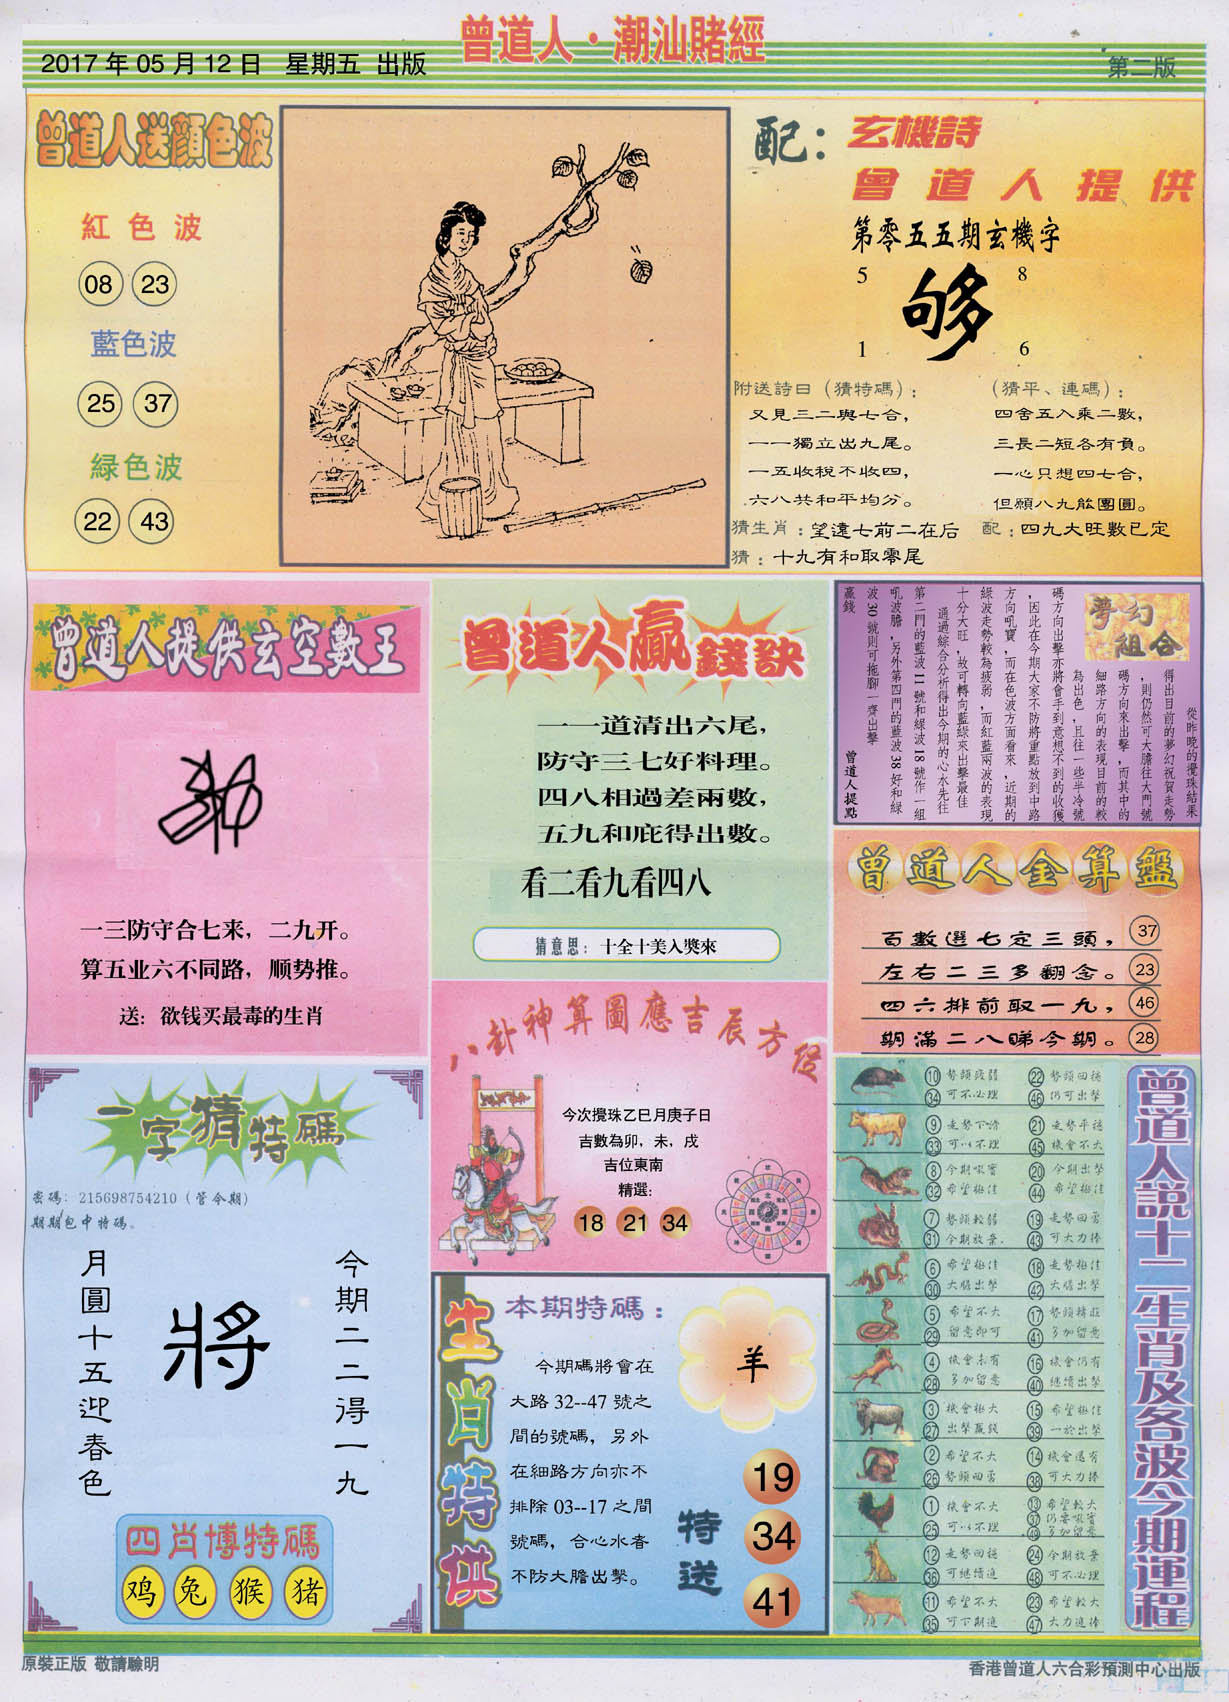 曾道人·潮汕賭經
2017年05月12日 星期五 出版
第二版
曾道人送顏色波
紅色波
08 23
藍色波
25 37
緑色波
22 43
配：玄機詩
曾道人提供
第零五五期玄機字
5 8
够
1 6
附送詩曰（猜特碼）：
又見三二與七合，
一一獨立出九尾。
一五收稅不收四，
六八共和平均分。
（猜平、連碼）：
四舍五入乘二數，
三長二短各有負。
一心只想四七合，
但願八九能團圓。
猜生肖：望遠七前二在后
配：四九大旺數已定
猜：十九有和取零尾
曾道人提供玄空數王
一三防守合七来，二九开。
算五业六不同路，顺势推。
送：欲钱买最毒的生肖
曾道人贏錢訣
一一道清出六尾，
防守三七好料理。
四八相過差兩數，
五九和庇得出數。
看二看九看四八
猜意思：十全十美入獎來
夢幻組合
從昨晚的攪珠結果
得出目前的夢幻祝賀走勢
，則仍然可大膽往大門號
碼方向來出擊，而其中的
細路方向的表現目前的較
為出色，且往一些半冷號
碼方向出擊亦將會手到意想不到的收獲
，因此在今期大家不防將重點放到中路
方向吼寶，而在色波方面看來，近期的
綠波走勢較為疲弱，而紅藍兩波的表現
十分大旺，故可轉向藍綠來出擊最佳
通過綜合分析得出今期的心水先往
第二門的藍波11號和綠波18號作一組
吼波膽，另外第四門的藍波38好和綠
波30號則可拖腳一齊出擊
贏錢
曾道人提點
曾道人金算盤
百數選七定三頭， 37
左右二三多翻念。 23
四六排前取一九， 46
期滿二八睇今期。 28
八卦神算圖應吉辰方位
今次攪珠乙巳月庚子日
吉數為卯，未，戌
吉位東南
精選：
18 21 34
一字猜特碼
密碼：215698754210（管今期）
期期包中特碼。
今期二二得一九
將
月圓十五迎春色
四肖博特碼
鸡 兔 猴 猪
生肖特供
本期特碼：
今期碼將會在
大路32--47號之
間的號碼，另外
在細路方向亦不
排除03--17之間
號碼，合心水者
不防大膽出擊。
羊
特送
19
34
41
曾道人説十二生肖及各波今期運程
10 34 勢頭疲弱 可不必理 22 46 勢頭回穩 仍可出擊
9 33 走勢下滑 可以不理 21 45 走勢平穩 機會不大
8 32 今期吼寶 希望極佳 20 44 今期出擊 希望極佳
7 31 勢頭較弱 今期放棄 19 43 走勢回勇 可大力捧
6 30 希望極佳 大膽出擊 18 42 走勢極佳 大膽出擊
5 29 希望不大 留意即可 17 41 勢頭轉旺 多加留意
4 28 機會未有 多加留意 16 40 機會仍有 繼續出擊
3 27 機會極大 出擊贏錢 15 39 希望極佳 一於出擊
2 26 希望不大 勢頭回勇 14 38 機會還有 可大力捧
1 25 機會不大 可以不理 13 37 49 希望較大 仍要吼寶 多加留意
12 36 走勢回穩 可繼續追 24 48 今期放棄 可不必理
11 35 希望不大 可下期追 23 47 希望較大 大力追捧
原裝正版 敬請驗明
香港曾道人六合彩預測中心出版